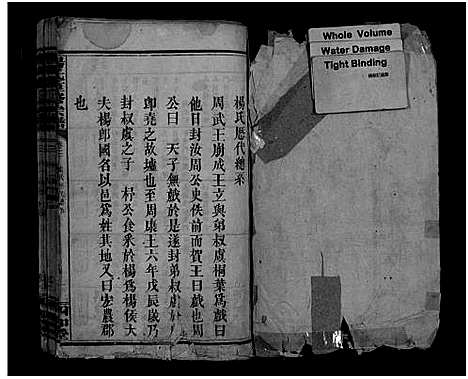 Whole Volume
Water Damage
Tight Binding
楊氏歷代總系
周武王崩成王立與弟叔虞桐葉爲戲曰
他日封汝周公史佚前而賀王曰戲也周
公曰 天子無戲於是遂封弟叔虞於
卽堯之故墟也至周康王六年戊辰歲乃
封叔虞之子 杼公食釆於楊爲楊侯大
夫楊郎國名以邑爲姓其地又曰宏農郡
也